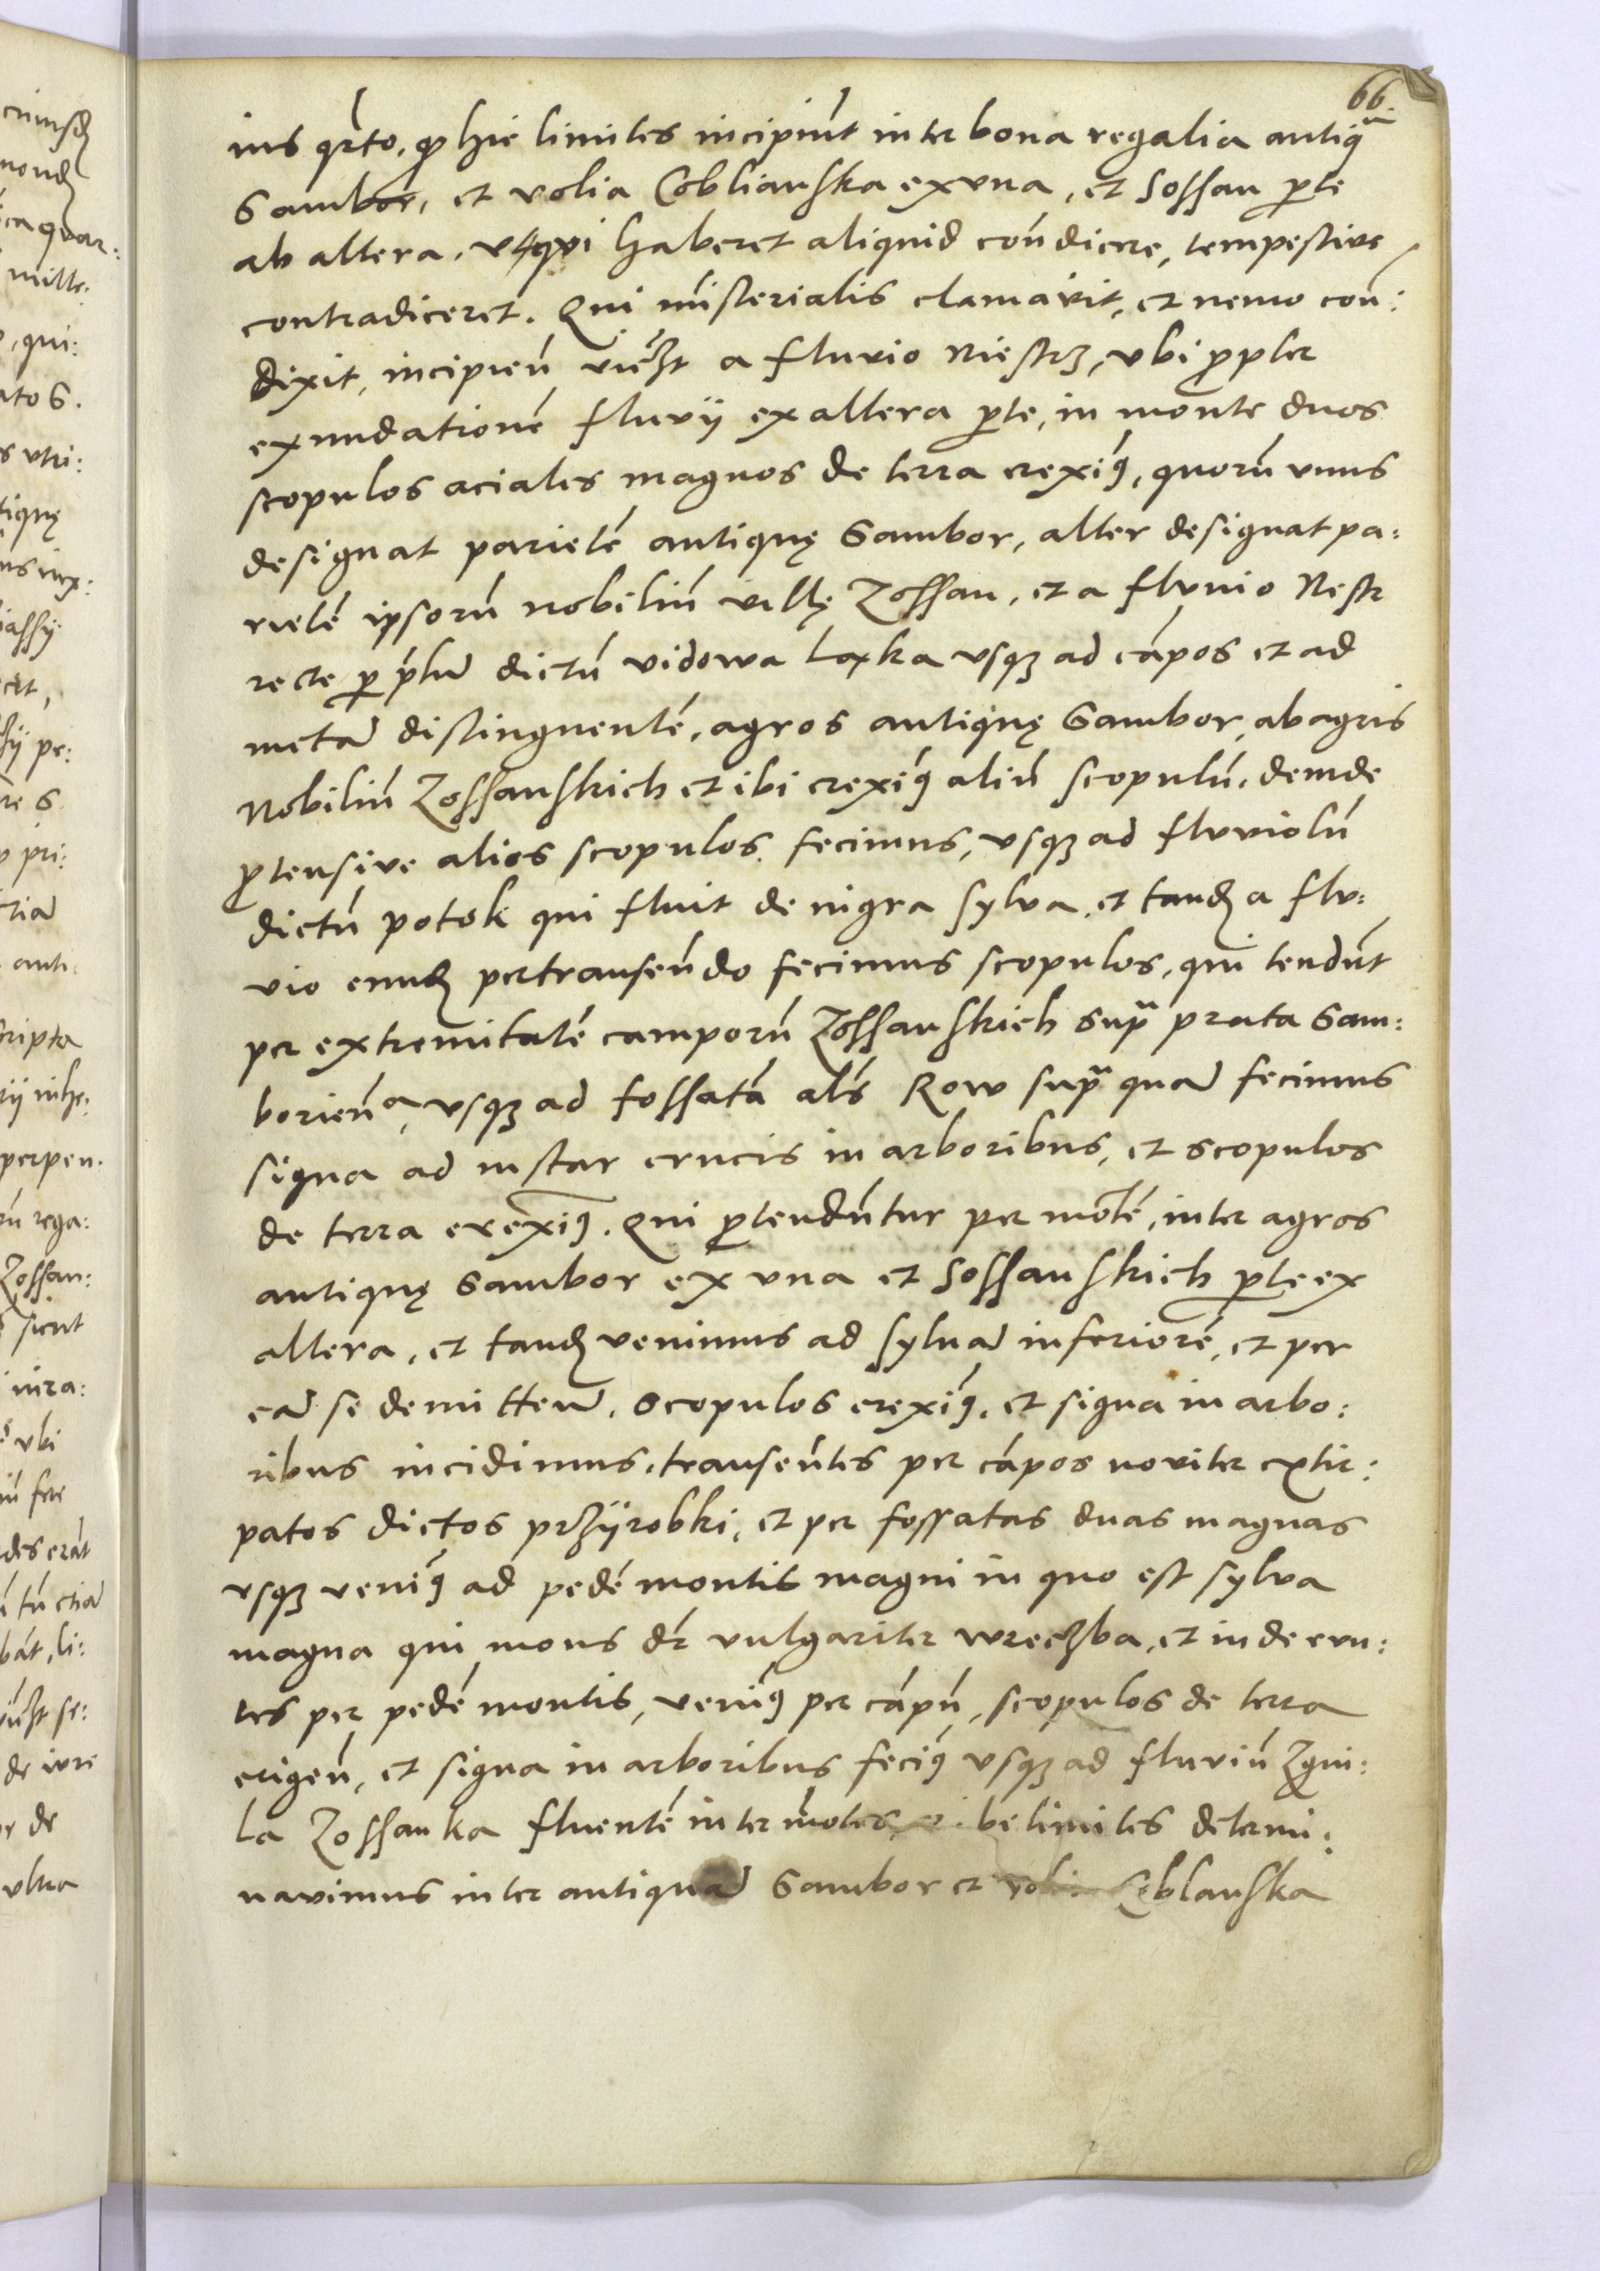 66.
ius qrto, ꝙ hic limites incipiũt inter bona regalia antiqᵃ
Sambor, et volia Coblianſka ex vna, et Soſſan ꝑte
ab altera, vt qvi haberet aliquid cõndicere, tempestive
contradiceret. Qui mĩsterialis clamavit, et nemo con:
dixit, incipieñ a fluvio Niestrz, vbi ꝓpter
exundationẽ fluvÿ ex altera ꝑte, in monte duos
scopulos aciales magnos de terra erexiꝰ, quorũ vnus
designat parietẽ antiquę Sambor, alter designat pa:
rietẽ ipsorũ nobiliũ villę Zoſſan, et a fluvio Nestr
recte ꝑ dictũ vidowa Laxka vsqꝫ ad cãpos et ad
metã distinguentẽ, agros antiquę Sambor, ab agris
Nobiliũ Zoſſanſkich et ibi erexiꝰ aliũ scopulũ, deinde
ꝓtensive alios scopulos fecimus, vsqꝫ ad fluviolũ
dictũ potok qui fluit de nigra sylva, et tandẽ a flu:
vio eundẽ pertranseũndo fecimus scopulos, qui tendũt
per extremitatẽ camporũ Zoſſanſkich supᵃ prata Sam:
borieñᵃ, vsqꝫ ad fossatã als̃ Row supᵃ quã fecimus
signa ad instar crucis in arboribus, et scopulos
de terra erexiꝰ. Qui ꝓtendũtur per mõtẽ, inter agros
antiquę Sambor ex vna et Soſſanſkich ꝑte ex
altera, et tandẽ venimus ad sylvã inferiorẽ, et per
eã se demitteñ, scopulos erexiꝰ, et signa in arbo:
ribus incidimus, transeũtes per cãpos noviter extir:
patos dictos przÿrobki, et per fossatas duas magnas
vsqꝫ veniꝰ ad pedẽ montis magni in quo est sylva
magna qui mons dr̃ vulgariter wreczba, et inde eun:
tes per pedẽ montis, veniꝰ per cãpũ, scopulos de terra
erigeñ, et signa in arboribus feciꝰ vsqꝫ ad fluviũ Zgni:
la Zoſſanka fluentẽ inter mõtes, limites determi:
navimus inter antiquã Sambor et Coblanſka